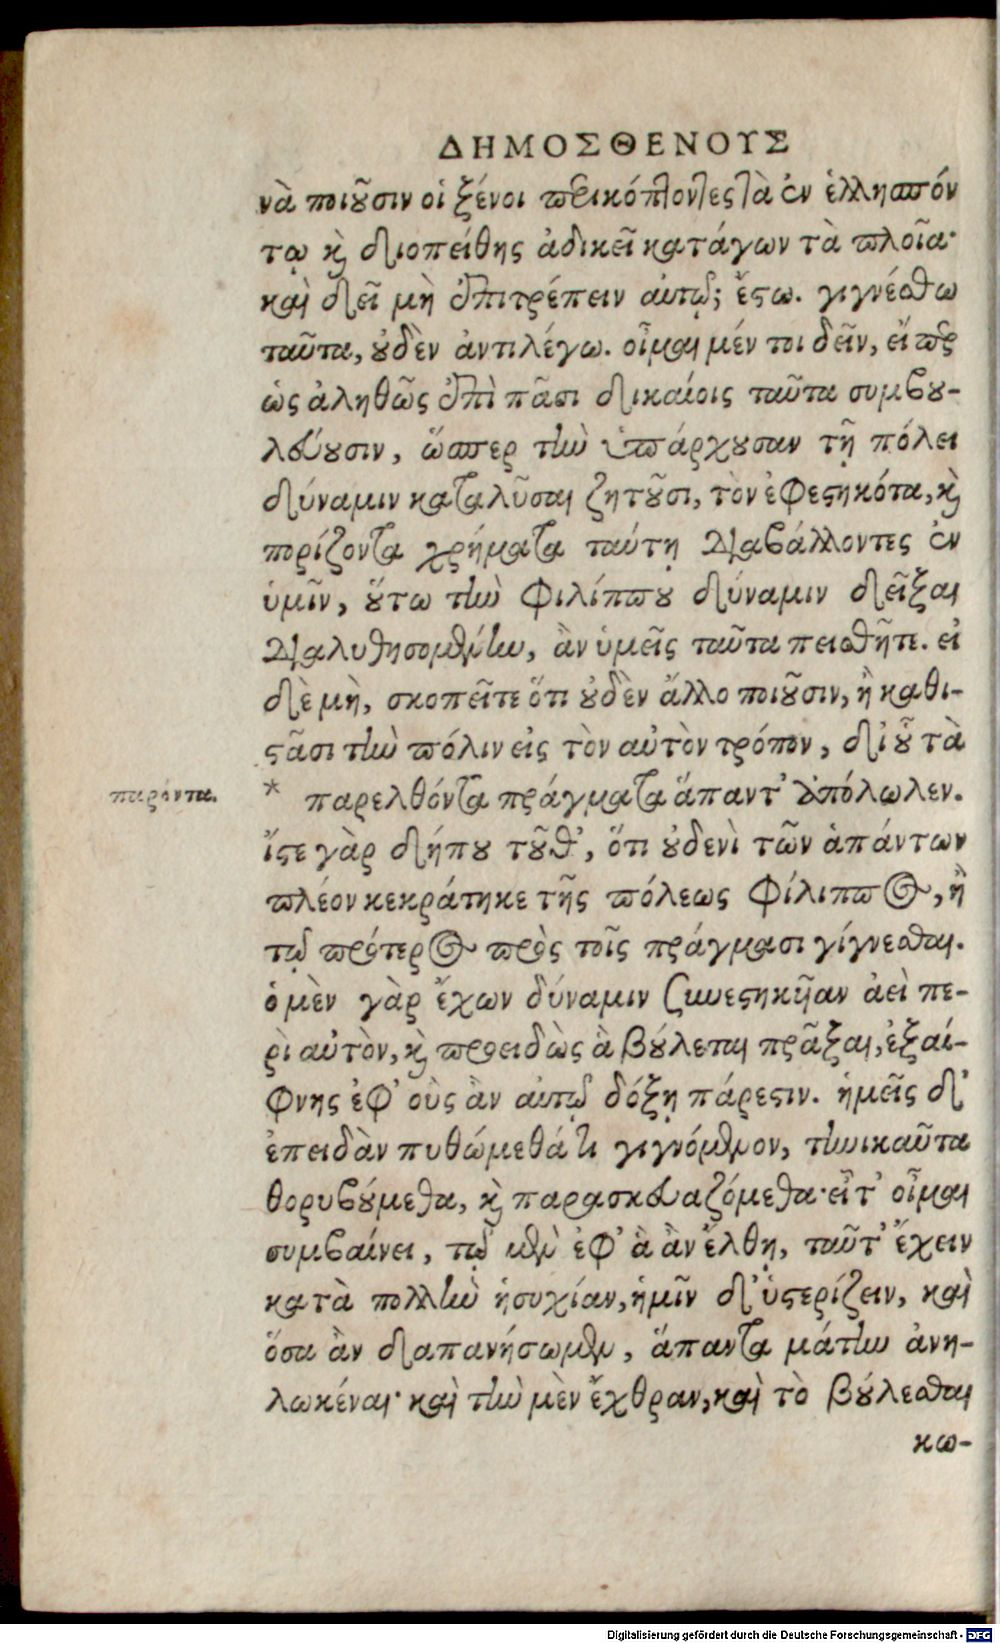 ΔΗΜΟΣΘΕΝΟΥΣ
νὰ ποιοῦσιν οἱ ξένοι περικόπτοντες τὰ ἐν ἑλλησπόν
τῳ καὶ διοπείθης ἀδικεῖ κατάγων τὰ πλοῖα·
καὶ δεῖ μὴ ἐπιτρέπειν αὐτῷ; ἔστω. γιγνέσθω
ταῦτα, οὐδὲν ἀντιλέγω. οἶμαι μέν τοι δεῖν, εἴπερ
ὡς ἀληθῶς ἐπὶ πᾶσι δικαίοις ταῦτα συμβου-
λεύουσιν, ὥσπερ τὴν ὑπάρχουσαν τῇ πόλει
δύναμιν καταλῦσαι ζητοῦσι, τὸν ἐφεστηκότα, καὶ
πορίζοντα χρήματα ταύτῃ διαβάλλοντες ἐν
ὑμῖν, οὕτω τὴν Φιλίππου δύναμιν δεῖξαι
διαλυθησομένην, ἂν ὑμεῖς ταῦτα πεισθῆτε. εἰ
δὲ μὴ, σκοπεῖτε ὅτι οὐδὲν ἄλλο ποιοῦσιν, ἢ καθι-
στᾶσι τὴν πόλιν εἰς τὸν αὐτὸν τρόπον, δι' οὗ τὰ
παρόντα.
* παρελθόντα πράγματα ἅπαντ' ἀπόλωλεν.
ἴστε γὰρ δήπου τοῦθ', ὅτι οὐδενὶ τῶν ἁπάντων
πλέον κεκράτηκε τῆς πόλεως Φίλιππος, ἢ
τῷ πρότερος πρὸς τοῖς πράγμασι γίγνεσθαι.
ὁ μὲν γὰρ ἔχων δύναμιν συνεστηκῆαν ἀεὶ πε-
ρὶ αὐτὸν, καὶ προειδὼς ἃ βούλεται πρᾶξαι, ἐξαί-
φνης ἐφ' οὓς ἂν αὐτῷ δόξῃ πάρεστιν. ἡμεῖς δ'
ἐπειδὰν πυθώμεθά τι γιγνόμενον, τηνικαῦτα
θορυβούμεθα, καὶ παρασκευαζόμεθα· εἶτ' οἶμαι
συμβαίνει, τῷ μὲν ἐφ' ἃ ἂν ἔλθῃ, ταῦτ' ἔχειν
κατὰ πολλὴν ἡσυχίαν, ἡμῖν δ' ὑστερίζειν, καὶ
ὅσα ἂν δαπανήσωμεν, ἅπαντα μάτην ἀνη-
λωκέναι· καὶ τὴν μὲν ἔχθραν, καὶ τὸ βούλεσθαι
κω-
Digitalisierung gefördert durch die Deutsche Forschungsgemeinschaft - DFG